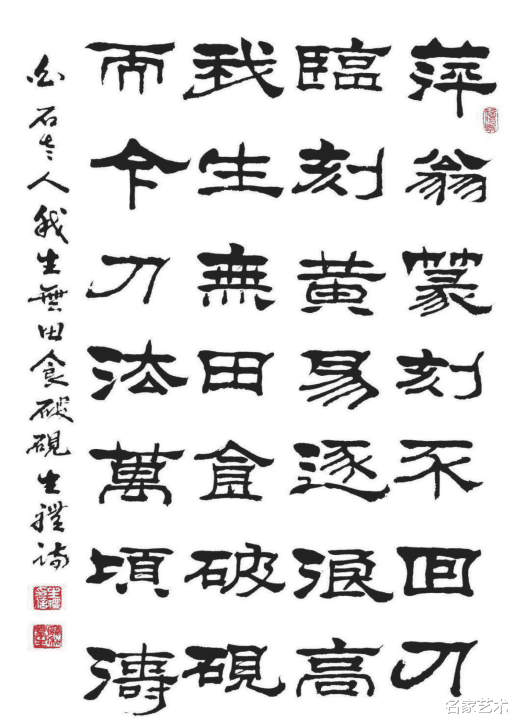 萍翁篆刻不回刀
臨刻黃易逐浪高
我生無田食破硯
而今刀法萬頃濤
白石老人我生無田食破硯生禮詩
名家艺术